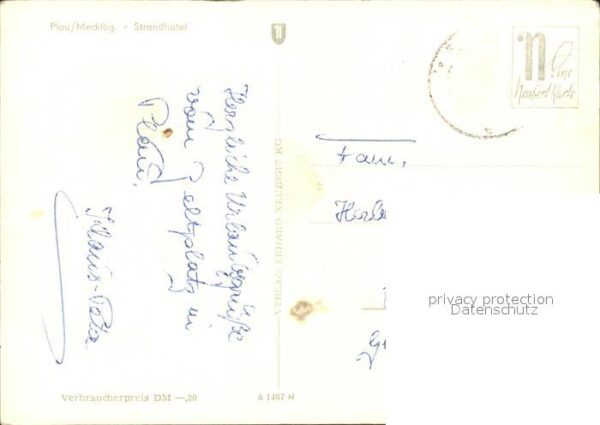 Plau/Mecklbg. - Strandhotel
Herzliche Urlaubsgrüße
vom Zeltplatz in
Plau.
Klaus-Peter
VERLAG ERHARD NEUBERT KG
Eine
Neubert Karte
Fam.
privacy protection
Datenschutz
Verbraucherpreis DM —,20
A 1467 N